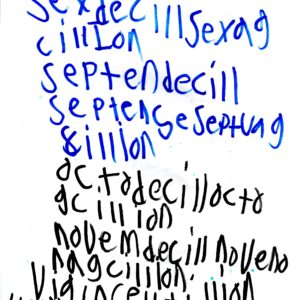 sexdecillsexag
cillion
septendecill
septenseseptuag
&illion
octodecillocto
gcillion
novemdecillnoveno
nagcillion